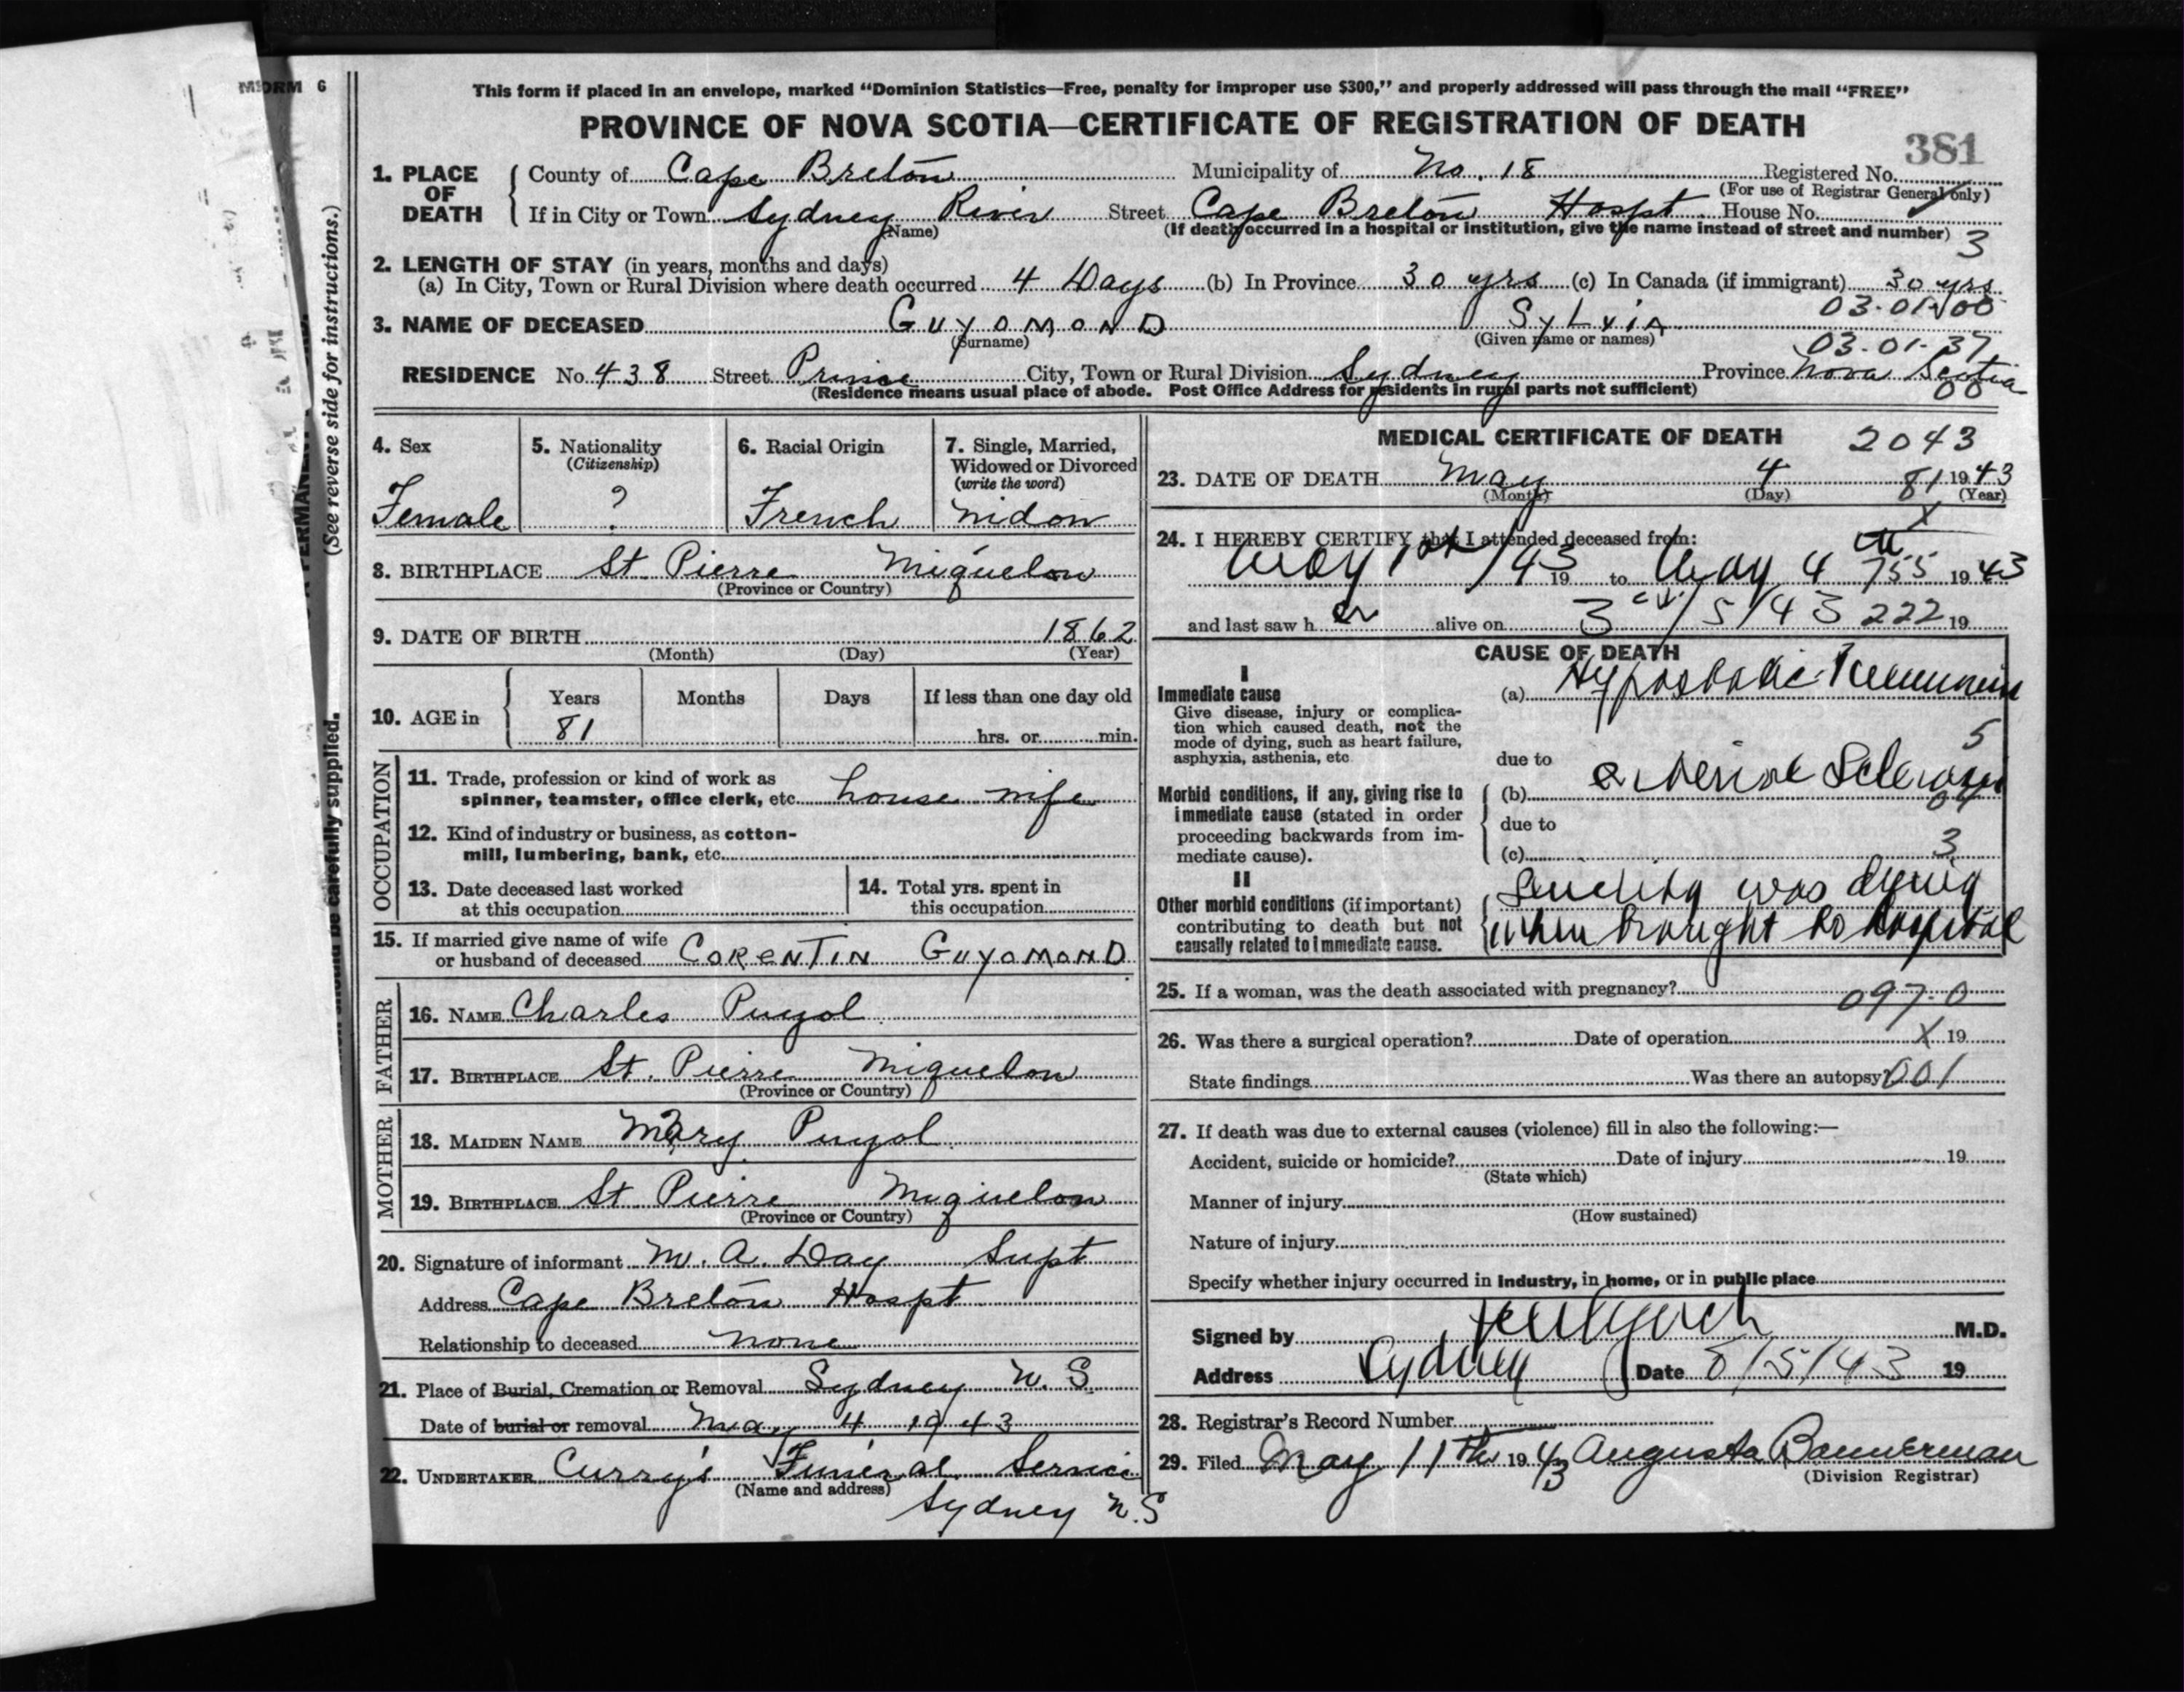 FORM 6
This form if placed in an envelope, marked "Dominion Statistics—Free, penalty for improper use $300," and properly addressed will pass through the mail "FREE"
PROVINCE OF NOVA SCOTIA—CERTIFICATE OF REGISTRATION OF DEATH
381
1. PLACE OF DEATH
County of Cape Breton Municipality of No. 18 Registered No.
(For use of Registrar General only)
If in City or Town Sydney River Street Cape Breton Hospt. House No.
(Name) (If death occurred in a hospital or institution, give the name instead of street and number)
3
2. LENGTH OF STAY (in years, months and days)
(a) In City, Town or Rural Division where death occurred 4 Days (b) In Province 30 yrs (c) In Canada (if immigrant) 30 yrs
03-01-00
3. NAME OF DECEASED GUYOMOND SYLVIA
(Surname) (Given name or names)
03-01-37
RESIDENCE No. 438 Street Prince City, Town or Rural Division Sydney Province Nova Scotia
(Residence means usual place of abode. Post Office Address for residents in rural parts not sufficient)
00
(See reverse side for instructions.)
should be carefully supplied.
4. Sex
Female
5. Nationality
(Citizenship)
?
6. Racial Origin
French
7. Single, Married,
Widowed or Divorced
(write the word)
Widow
8. BIRTHPLACE St. Pierre Miquelon
(Province or Country)
9. DATE OF BIRTH 1862
(Month) (Day) (Year)
10. AGE in
Years Months Days If less than one day old
81 hrs. or min.
OCCUPATION
11. Trade, profession or kind of work as
spinner, teamster, office clerk, etc. house wife
12. Kind of industry or business, as cotton-
mill, lumbering, bank, etc.
13. Date deceased last worked
at this occupation
14. Total yrs. spent in
this occupation
15. If married give name of wife
or husband of deceased CORENTIN GUYOMOND
FATHER
16. NAME Charles Puyol
17. BIRTHPLACE St. Pierre Miquelon
(Province or Country)
MOTHER
18. MAIDEN NAME Mary Puyol
19. BIRTHPLACE St Pierre Miquelon
(Province or Country)
20. Signature of informant M. A. Day Supt
Address Cape Breton Hospt
Relationship to deceased none
21. Place of Burial, Cremation or Removal Sydney N. S.
Date of burial or removal May 4 1943
22. UNDERTAKER Curry's Funeral Service
(Name and address)
Sydney N.S
MEDICAL CERTIFICATE OF DEATH 2043
23. DATE OF DEATH May 4 81 1943
(Month) (Day) (Year)
X
24. I HEREBY CERTIFY that I attended deceased from:
May 1st /43 19 to May 4 755 1943
and last saw her alive on 3 /5/43 222 19
CAUSE OF DEATH
I
Immediate cause
Give disease, injury or complica-
tion which caused death, not the
mode of dying, such as heart failure,
asphyxia, asthenia, etc
(a) Hypostatic Pneumonia
5
due to
Morbid conditions, if any, giving rise to
immediate cause (stated in order
proceeding backwards from im-
mediate cause).
(b) arterial Sclerosis
due to
(c) 3
II
Other morbid conditions (if important)
contributing to death but not
causally related to immediate cause.
Senility was dying
when brought to hospital
25. If a woman, was the death associated with pregnancy?
097-0
26. Was there a surgical operation? Date of operation X 19
State findings Was there an autopsy? 001
27. If death was due to external causes (violence) fill in also the following:—
Accident, suicide or homicide? Date of injury 19
(State which)
Manner of injury
(How sustained)
Nature of injury
Specify whether injury occurred in industry, in home, or in public place
Signed by M.D.
Address Sydney Date 8/5/43 19
28. Registrar's Record Number
29. Filed May 11th 1943 Augusta Bannerman
(Division Registrar)